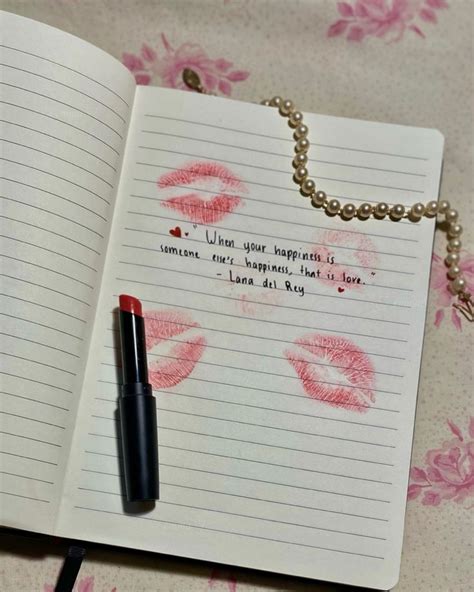 " When your happiness is
someone else's happiness, that is love. "
- Lana del Rey